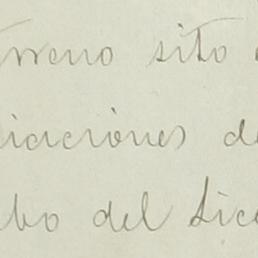 terreno sito
iaciones de
bo del Lice